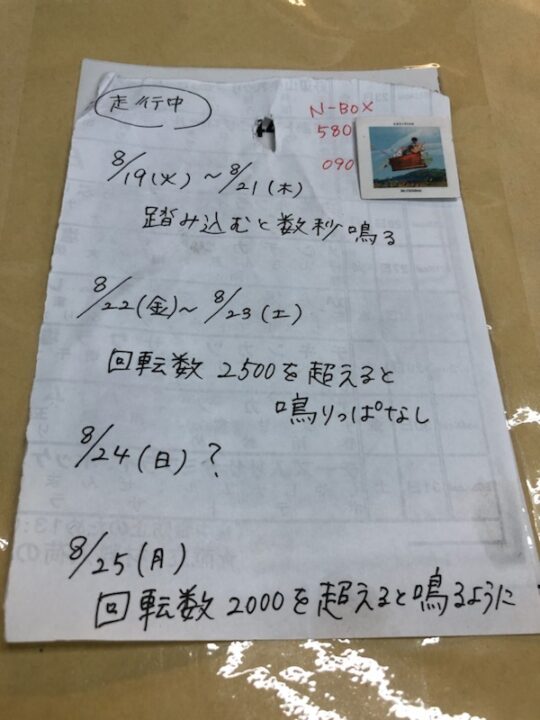 走行中
N-BOX
580
090
8/19(火)~8/21(木)
踏み込むと数秒鳴る
8/22(金)~8/23(土)
回転数2500を超えると
鳴りっぱなし
8/24(日)?
8/25(月)
回転数2000を超えると鳴るように